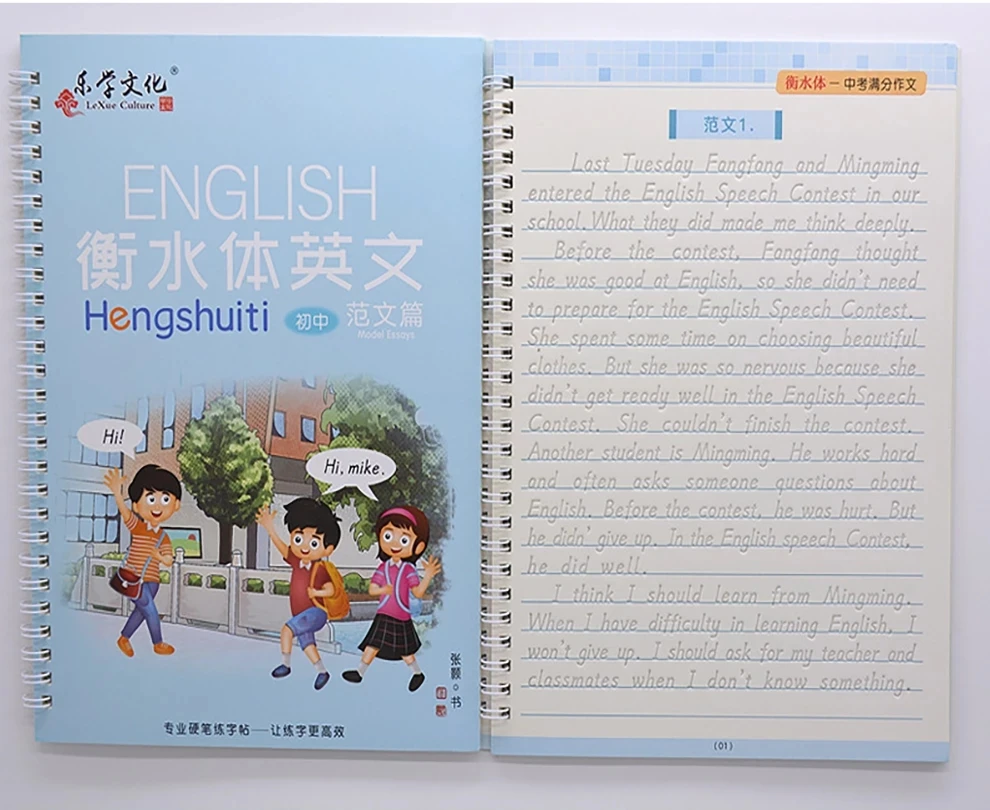 乐学文化®
LeXue Culture
ENGLISH
衡水体英文
Hengshuiti 初中 范文篇
Model Essays
Hi!
Hi, mike.
张颢。书
专业硬笔练字帖——让练字更高效
衡水体—中考满分作文
范文1.
Last Tuesday Fangfang and Mingming
entered the English Speech Contest in our
school. What they did made me think deeply.
Before the contest, Fangfang thought
she was good at English, so she didn't need
to prepare for the English Speech Contest.
She spent some time on choosing beautiful
clothes. But she was so nervous because she
didn't get ready well in the English Speech
Contest. She couldn't finish the contest.
Another student is Mingming. He works hard
and often asks someone questions about
English. Before the contest, he was hurt. But
he didn' give up. In the English speech Contest,
he did well.
I think I should learn from Mingming.
When I have difficulty in learning English, I
won't give up. I should ask for my teacher and
classmates when I don't know something.
(01)